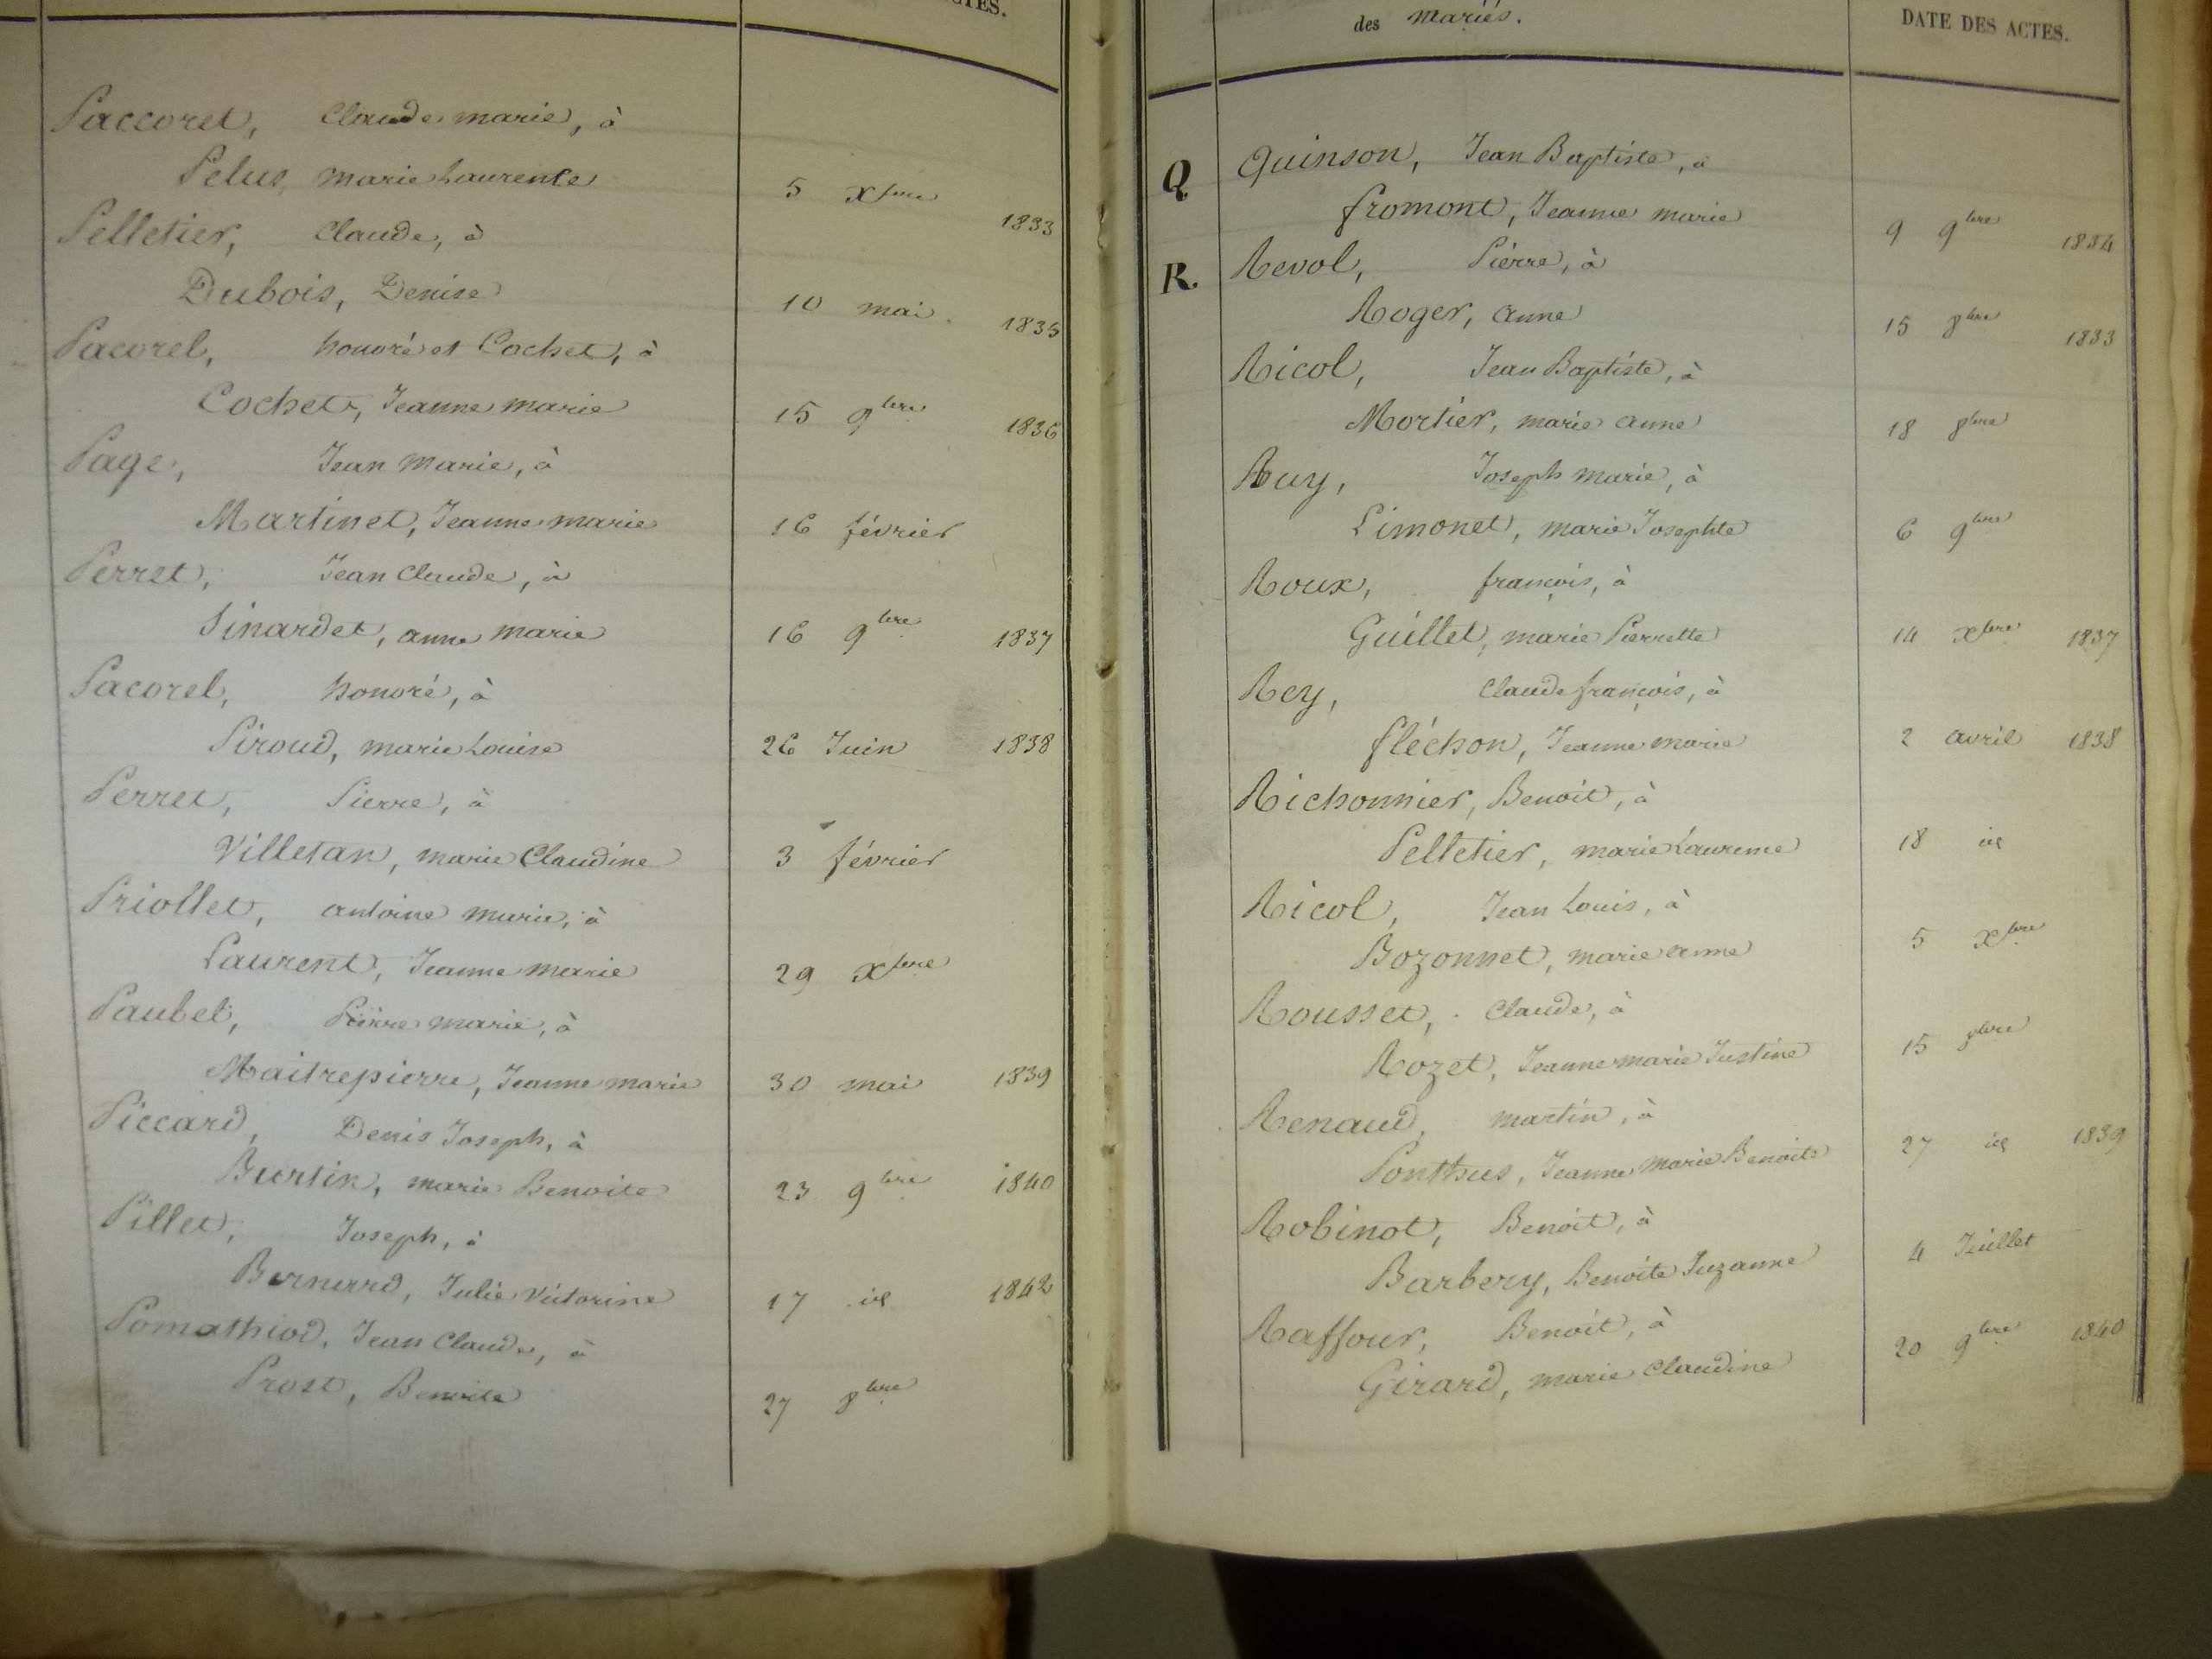 CTES.
Paccoret, Claude marie, à
Pelus, marie Laurence 5 Xbre 1833
Pelletier, Claude, à
Dubois, Denise 10 mai. 1835
Pacorel, honoré et Cochet, à
Cochet, Jeanne marie 15 9bre 1836
Page, Jean marie, à
Martinet, Jeanne marie 16 février
Perret, Jean Claude, à
Sinardet, anne marie 16 9bre 1837
Pacorel, honoré, à
Piroud, marie Louise 26 Juin 1838
Perret, Pierre, à
marie Claudine 3 février
Priollet, antoine marie, à
Laurent, Jeanne marie 29 Xbre
Paubel, Pierre marie, à
Maitrepierre, Jeanne marie 30 mai 1839
Piccard, Denis Joseph, à
Burtin, marie Benoite 23 9bre 1840
Pillet, Joseph, à
Bernard, Julie Victorine 17 id 1842
Pomathiod, Jean Claude, à
Prost, Benoite 27 8bre
des mariés. DATE DES ACTES.
Q Quinson, Jean Baptiste, à
fromont, Jeanne marie 9 9bre 1834
R. Revol, Pierre, à
Roger, anne 15 8bre 1833
Ricol, Jean Baptiste, à
Mortier, marie anne 18 8bre
Ruy, Joseph marie, à
Limonet, marie Josephte 6 9bre
Roux, françois, à
Guillet, marie Pierrette 14 Xbre 1837
Rey, Claude françois, à
fléchon, Jeanne marie 2 avril 1838
Richonnier, Benoit, à
Pelletier, marie Laurence 18 id
Ricol, Jean Louis, à
Bozonnet, marie anne 5 Xbre
Rousset, Claude, à
Rozet, Jeanne marie Justine 15 8bre
Renaud, martin, à
Ponthus, Jeanne Marie Benoite 27 id 1839
Robinot, Benoit, à
Barbery, Benoite Suzanne 4 Juillet
Raffour, Benoit, à
Girard, marie Claudine 20 9bre 1840